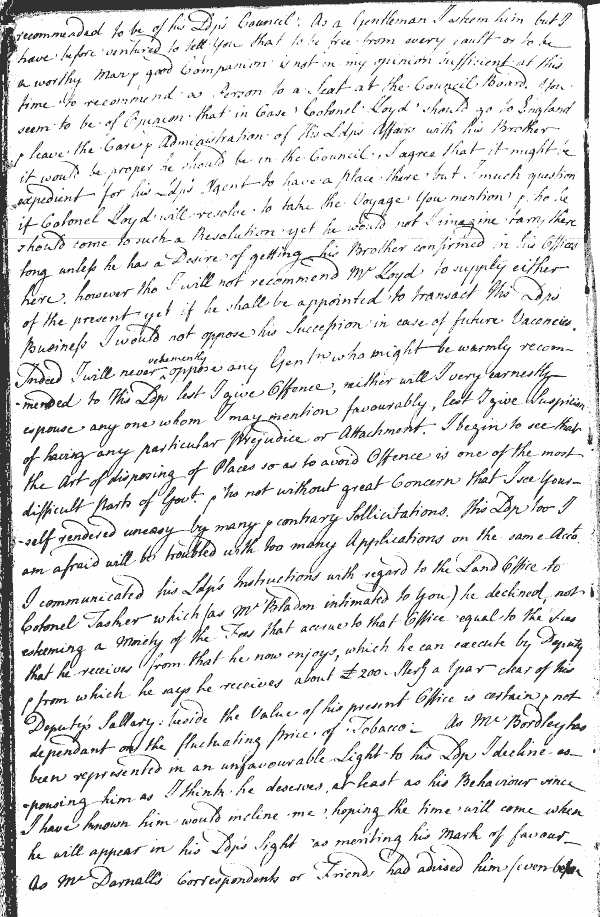 recommended to be of his Ldp's Council: As a Gentleman I esteem him but I
have before ventured to tell You that to be free from every fault or to be
a worthy Man & good Companion is not in my opinion sufficient at this
time to recommend a Person to a Seat at the Council Board. You
seem to be of Opinion that in Case Colonel Lloyd should go to England
& leave the Care & Administration of His Ldp's Affairs with his Brother
it would be proper he should be in the Council. I agree that it might be
expedient for his Ldp's Agent to have a place there but I much question
if Colonel Lloyd will resolve to take the Voyage You mention, & tho he
should come to such a Resolution yet he would not I imagine tarry there
long unless he has a Desire of getting his Brother confirmed in his Offices
here, however tho I will not recommend Mr Lloyd to supply either
of the present yet if he shall be appointed to transact His Ldp's
Business I would not oppose his Succession in case of future Vacancies.
Indeed I will never vehemently oppose any Gentn who might be warmly recom-
-mended to His Ldp lest I give Offence, neither will I very earnestly
espouse any one whom I may mention favourably, lest I give Suspicion
of having any particular Prejudice or Attachment. I begin to see that
the Art of disposing of Places so as to avoid Offence is one of the most
difficult Parts of Govt & 'tis not without great Concern that I see Your-
-self rendered uneasy by many & contrary Sollicitations. His Ldp too I
am afraid will be troubled with too many Applications on the same Acco.
I communicated his Ldp's Instructions with regard to the Land Office to
Colonel Tasker which (as Mr Bladon intimated to You) he declined not
esteeming a Moiety of the Fees that accrue to that Office equal to the Fees
that he receives from that he now enjoys, which he can execute by Deputy
& from which he says he receives about £200 Sterlg a Year clear of his
Deputy's Sallary: beside the Value of his present Office is certain & not
dependant on the fluctuating Price of Tobacco: As Mr Bordley has
been represented in an unfavourable Light to his Ldp I decline es-
-pousing him as I think he deserves, at least as his Behaviour since
I have known him would incline me, hoping the time will come when
he will appear in his Ldp's Sight as meriting his Mark of favour—
As Mr Darnall's Correspondents or Friends had advised him (even before